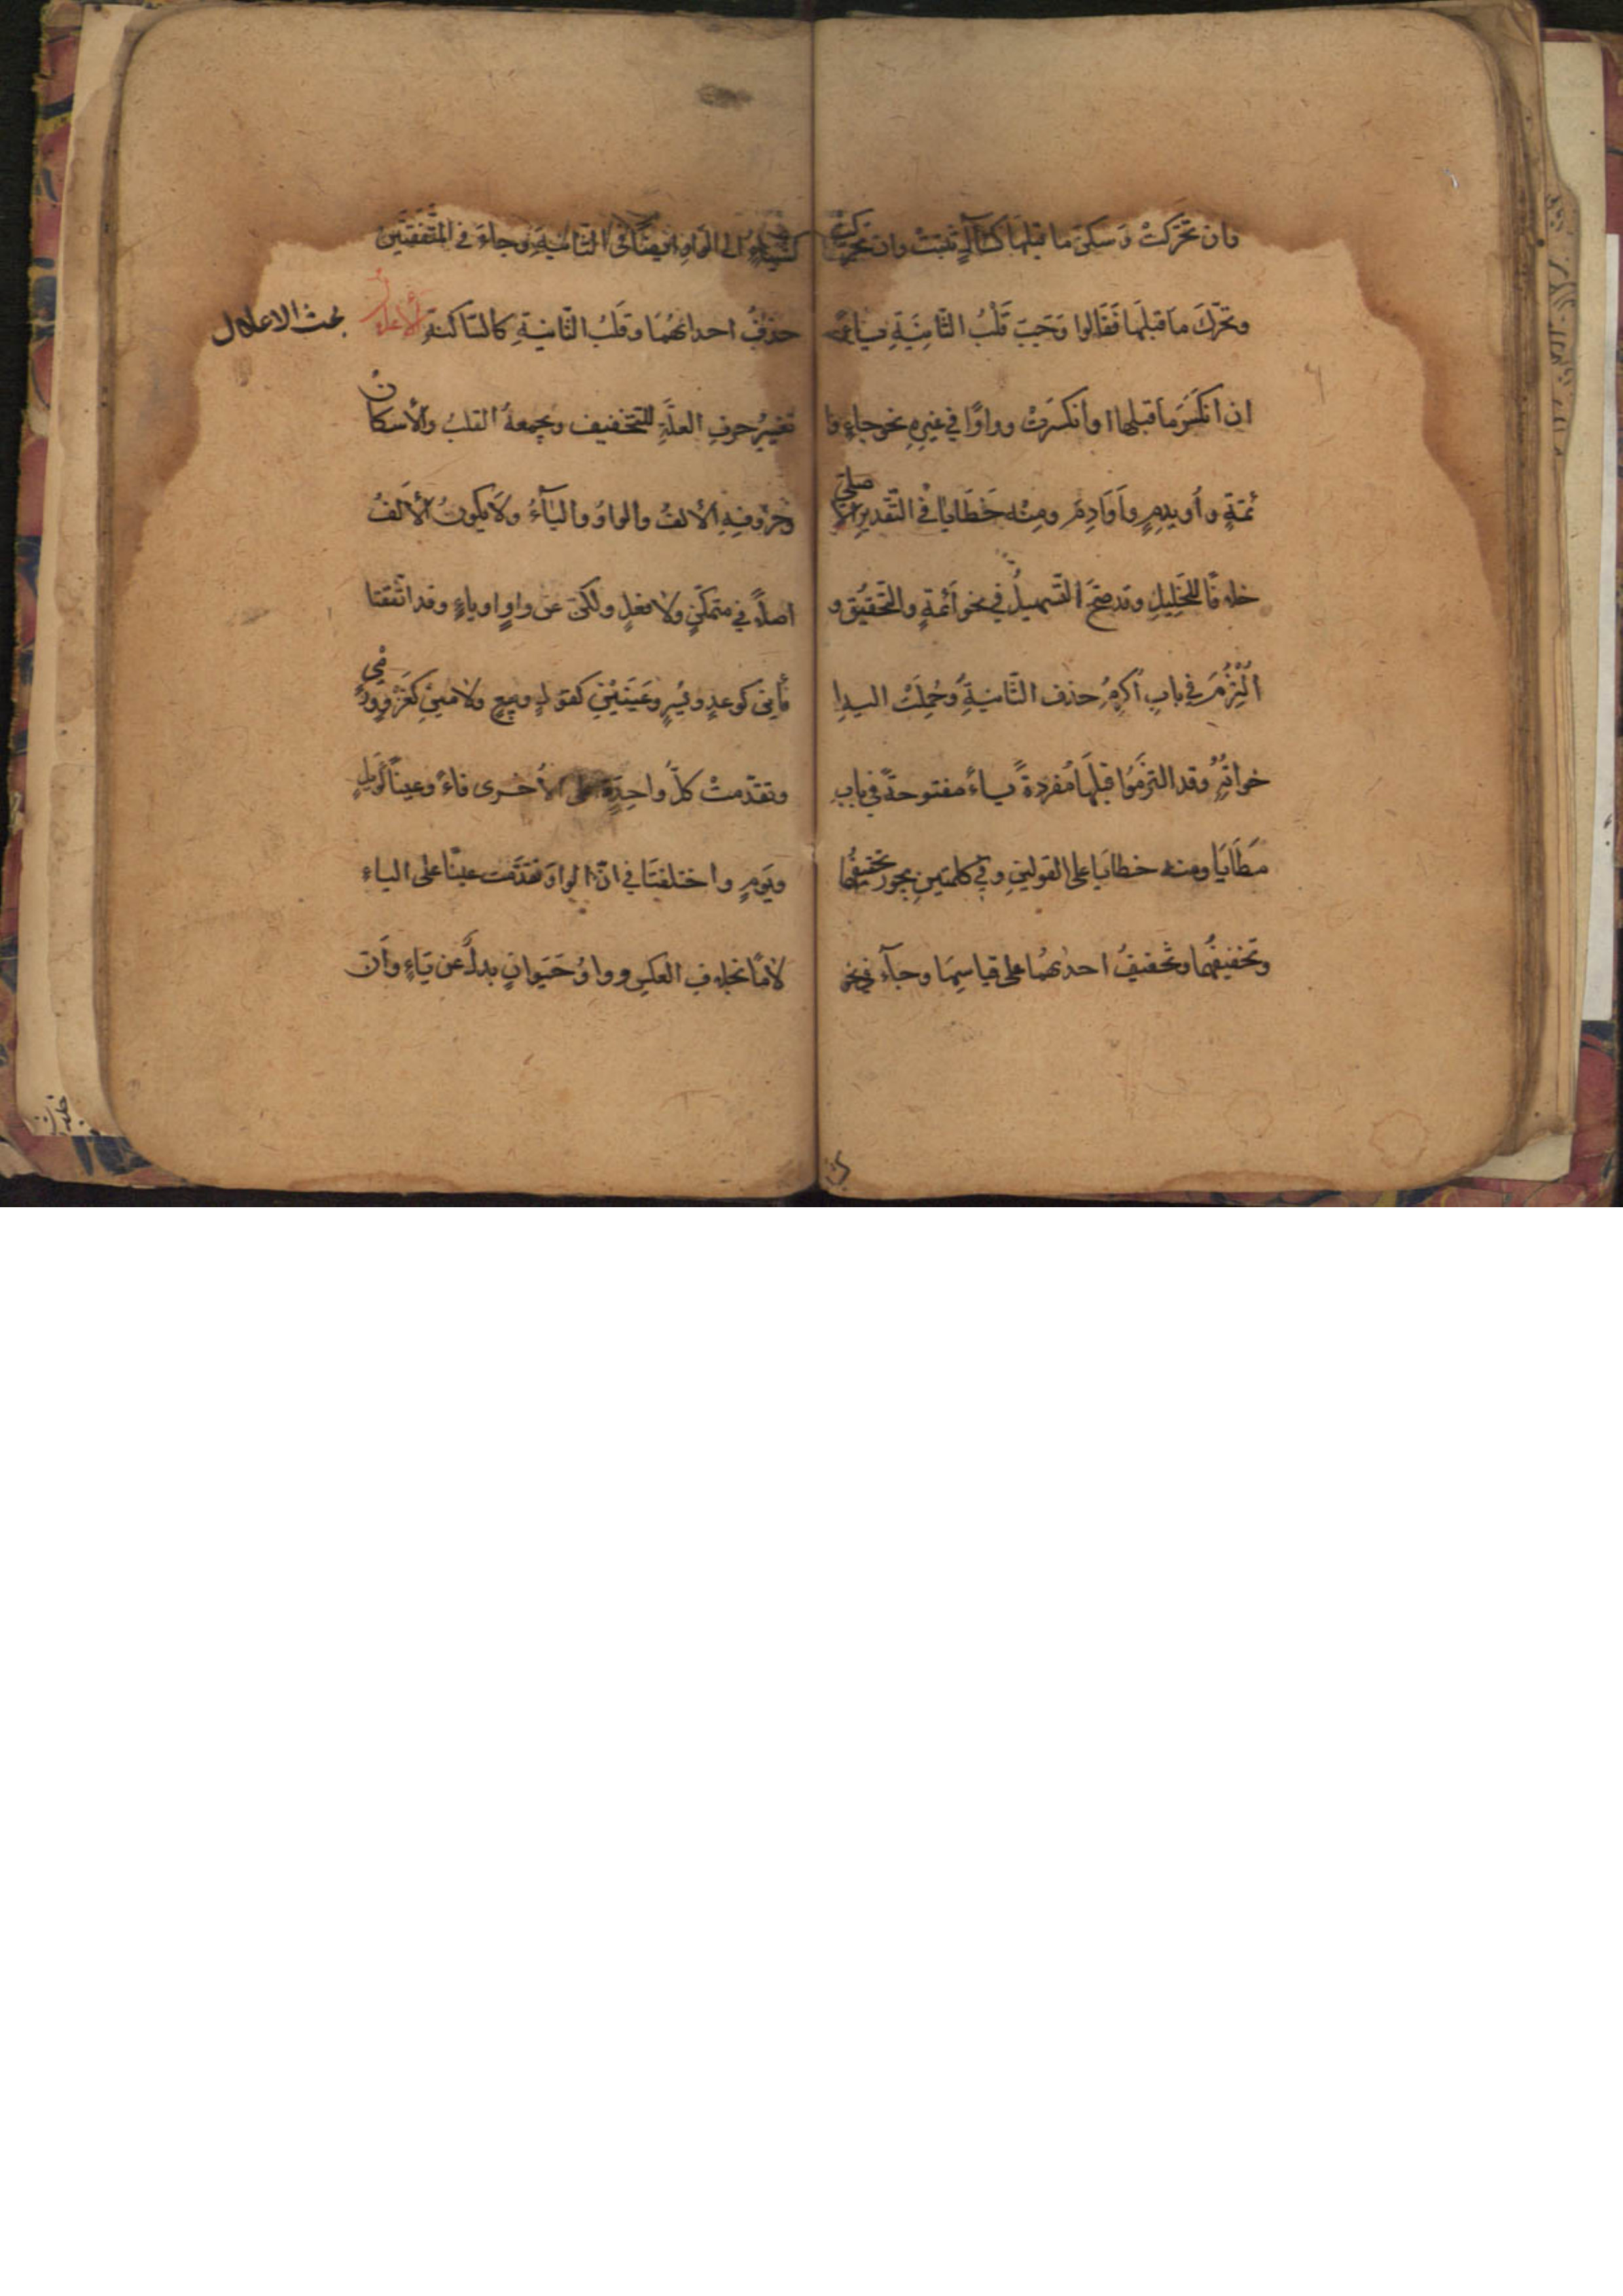 وان تحرّكت وسكن ما قبلها كسآل تثبت وان تحركت
وتحرّك ما قبلها فقالوا وجب قلب الثّانية ياء
ان انكسر ما قبلها او انكسرت وواوًا في غيره نحو جاءٍ وا
ئمّةٍ واُويدمٍ واَوَادِمَ ومنه خَطَايَا في التّقدير الاصليّ
خلافًا للخليل وقد صحّ التّسهيلُ في نحو أئمّةٍ والتّحقيق و
اُلتُزِمَ في باب اُكرِمُ حذف الثّانية وحُملت اليه ا
خواتُه وقد التزموا قبلها مُفردةً ياءً مفتوحةً في باب
مَطَايَا ومنه خطايَا على القولينِ وفي كلمتينِ يجوز تحقيقُهما
وتخفيفُهما وتخفيفُ احدٰهُما على قياسِهَا وجآء في نحو
الى الواو ايضًا في الثّانية وجاءَ في المتّفقتين
حذفُ احدٰهُمَا وقَلبُ الثّانيةِ كالسّاكنة الأعلالُ
تغييرُ حرفِ العلّةِ للتخفيف ويجمعهُ القلبُ والأسكانُ
وحروفهِ الألفُ والواوُ والياءُ ولا يكونُ الألفُ
اصلاً في متمكّنٍ ولا فعلٍ ولكن عن واوٍ او ياءٍ وقد اتّفقتا
فأين كوعدٍ ويُسرٍ وعَينَينِ كقولٍ وبيعٍ ولامينِ كغزوٍ ورميٍ
وتقدّمتْ كلُّ واحدةٍ على الأخرى فاءً وعينًا كَويلٍ
ويَومٍ واختلفتَا في انّ الواوَ تقدّمت عينًا على الياءِ
لامًا بخلاف العكسِ وواوُ حَيَوانٍ بدلٌ عن ياءٍ واَنّ
بحث الاعلال